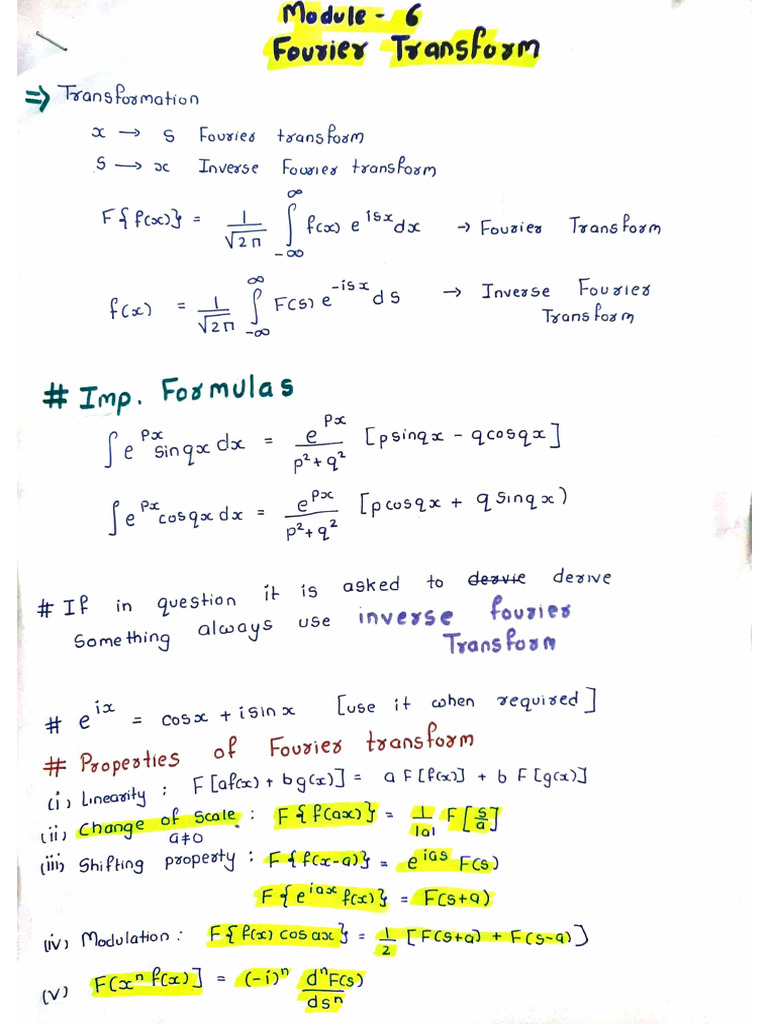 Module - 6
Fourier Transform
⇒ Transformation
x → s Fourier transform
s → x Inverse Fourier transform
F{f(x)} = 1/√2π ∫_{-∞}^{∞} f(x) e^{isx} dx → Fourier Transform
f(x) = 1/√2π ∫_{-∞}^{∞} F(s) e^{-isx} ds → Inverse Fourier
Transform
# Imp. Formulas
∫e^{px} sinqx dx = e^{px}/(p²+q²) [psinqx - qcosqx]
∫e^{px} cosqx dx = e^{px}/(p²+q²) [pcosqx + qsinqx)
# If in question it is asked to dervie derive
Something always use inverse fourier
Transform
# e^{ix} = cosx + isinx [use it when required]
# Properties of Fourier transform
(i) Linearity : F[af(x) + bg(x)] = a F[f(x)] + b F[g(x)]
(ii) Change of Scale : F{f(ax)} = 1/|a| F[s/a]
a≠0
(iii) Shifting property : F{f(x-a)} = e^{ias} F(s)
F{e^{iax} f(x)} = F(s+a)
(iv) Modulation : F{f(x) cosax} = 1/2 [F(s+a) + F(s-a)]
(v) F(x^n f(x)] = (-i)^n d^nF(s)/ds^n